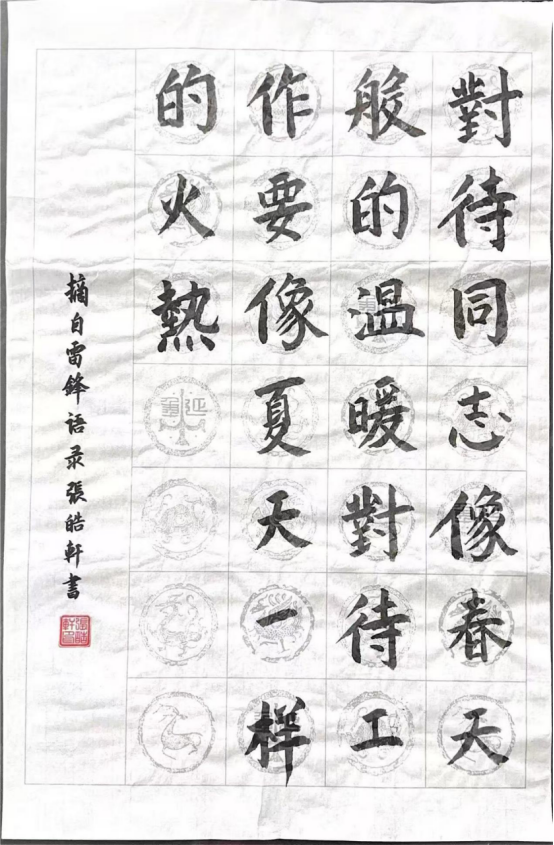 對待同志像春天
般的温暖對待工
作要像夏天一樣
的火熱
摘自雷鋒语录張皓軒書